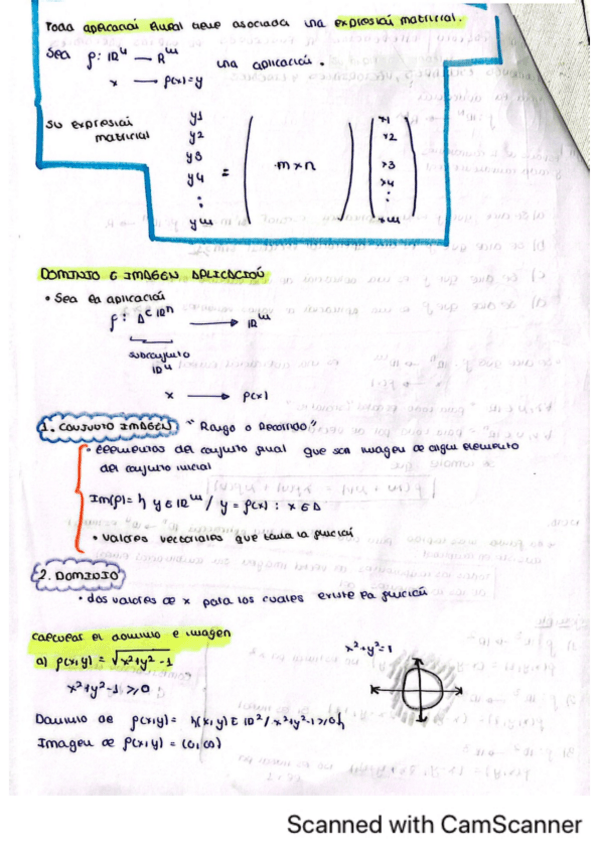 Toda aplicación lineal tiene asociada una expresión matricial.
Sea f: ℝⁿ → ℝᵐ una aplicación.
x → f(x)=y
su expresión matricial
y1
y2
y3
y4
:
ym
=
m×n
x1
x2
x3
x4
:
xm
DOMINIO E IMAGEN APLICACIÓN
• Sea la aplicación
f: Δ⊂ℝⁿ → ℝᵐ
subconjunto
ℝⁿ
x → f(x)
1. CONJUNTO IMAGEN "Rango o Recorrido"
• elementos del conjunto final que son imagen de algún elemento
del conjunto inicial
Im(f)= { y∈ℝᵐ / y = f(x) : x∈Δ
• valores vectoriales que toma la función
2. DOMINIO
• los valores de x para los cuales existe la función
calcular el dominio e imagen
a) f(x,y) = √x²+y²-1
x²+y²=1
x²+y²-1 ≥ 0
Dominio de f(x,y)= {(x,y)∈ℝ²/x²+y²-1≥0}
Imagen de f(x,y) = (0,∞)
Scanned with CamScanner